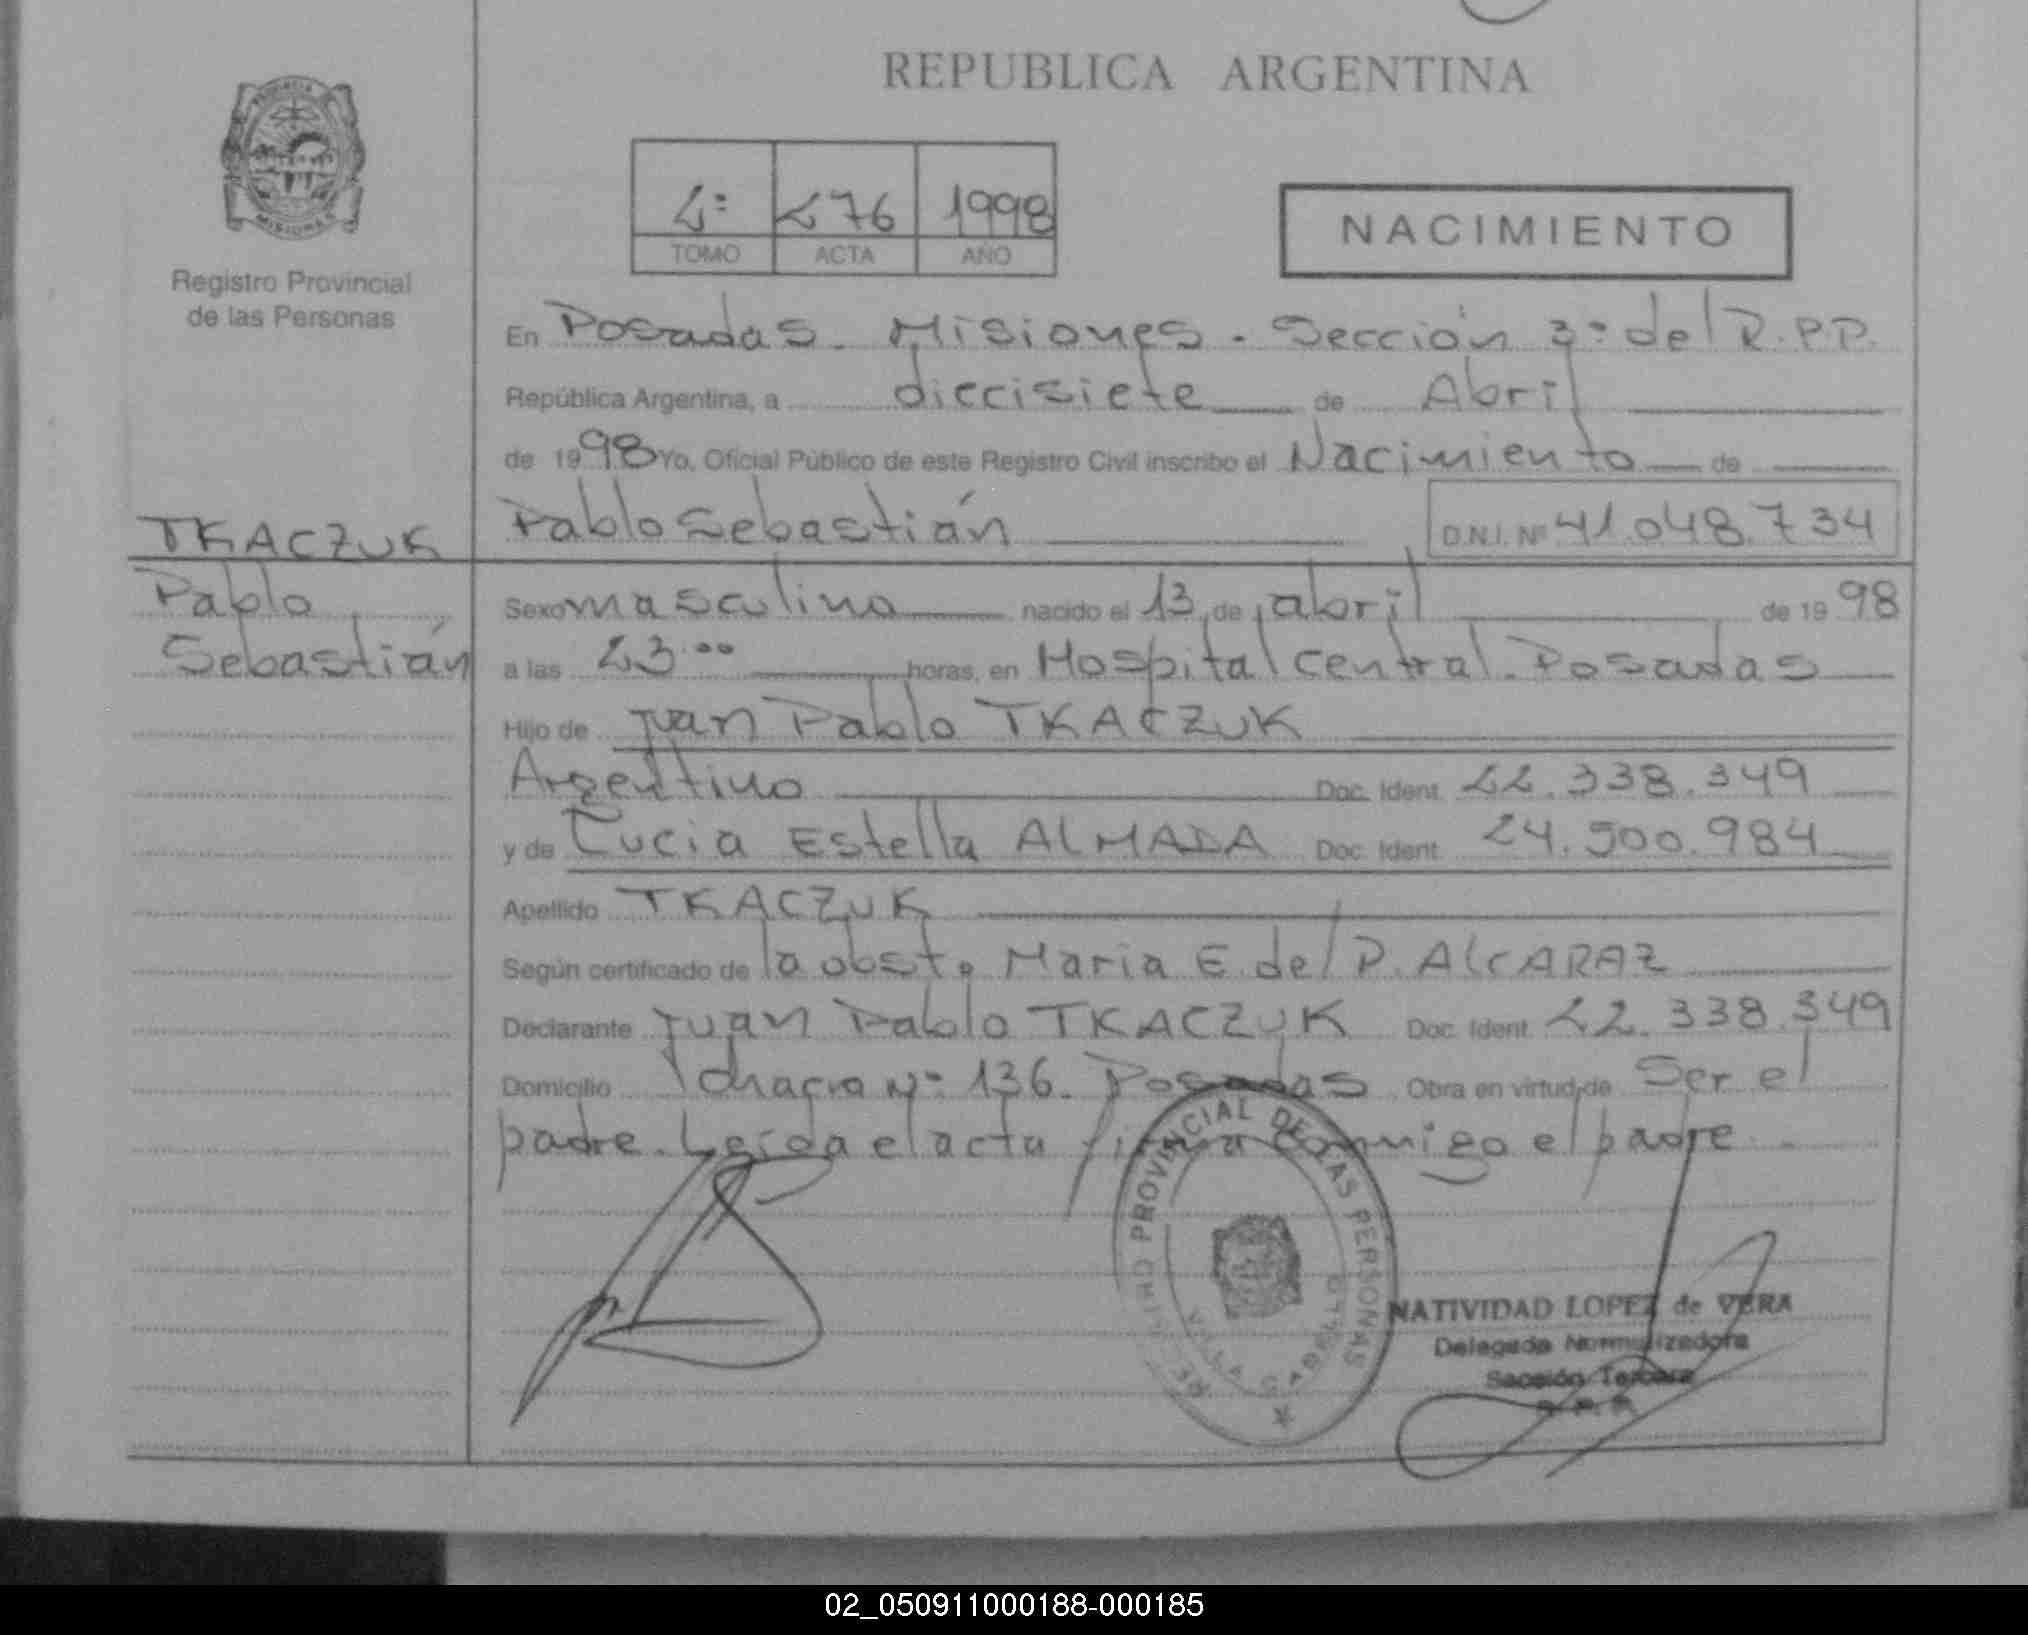 REPUBLICA ARGENTINA
PROVINCIA DE
MISIONES
Registro Provincial
de las Personas
2º 276 1998
TOMO ACTA AÑO
NACIMIENTO
En Posadas. Misiones. Sección 3º del R.P.P.
República Argentina, a diecisiete de Abril
de 1998 Yo, Oficial Público de este Registro Civil inscribo el Nacimiento de
Pablo Sebastián D.N.I. Nº 41.048.734
TKACZUK
Pablo
Sebastián
Sexo masculino nacido el 13 de abril de 1998
a las 23.00 horas, en Hospital Central. Posadas
Hijo de Juan Pablo TKACZUK
Argentino Doc. Ident. 22.338.349
y de Lucia Estella ALMADA Doc. Ident. 24.500.984
Apellido TKACZUK
Según certificado de la obst. Maria E. del P. ALCARAZ
Declarante Juan Pablo TKACZUK Doc. Ident. 22.338.349
Domicilio chacra Nº 136. Posadas Obra en virtud de Ser el
padre. Leída el acta firma conmigo el padre.
REGISTRO PROVINCIAL DE LAS PERSONAS
VILLA
NATIVIDAD LOPEZ de VERA
Delegada Normalizadora
Sección Tercera
R.P.P.
02_050911000188-000185